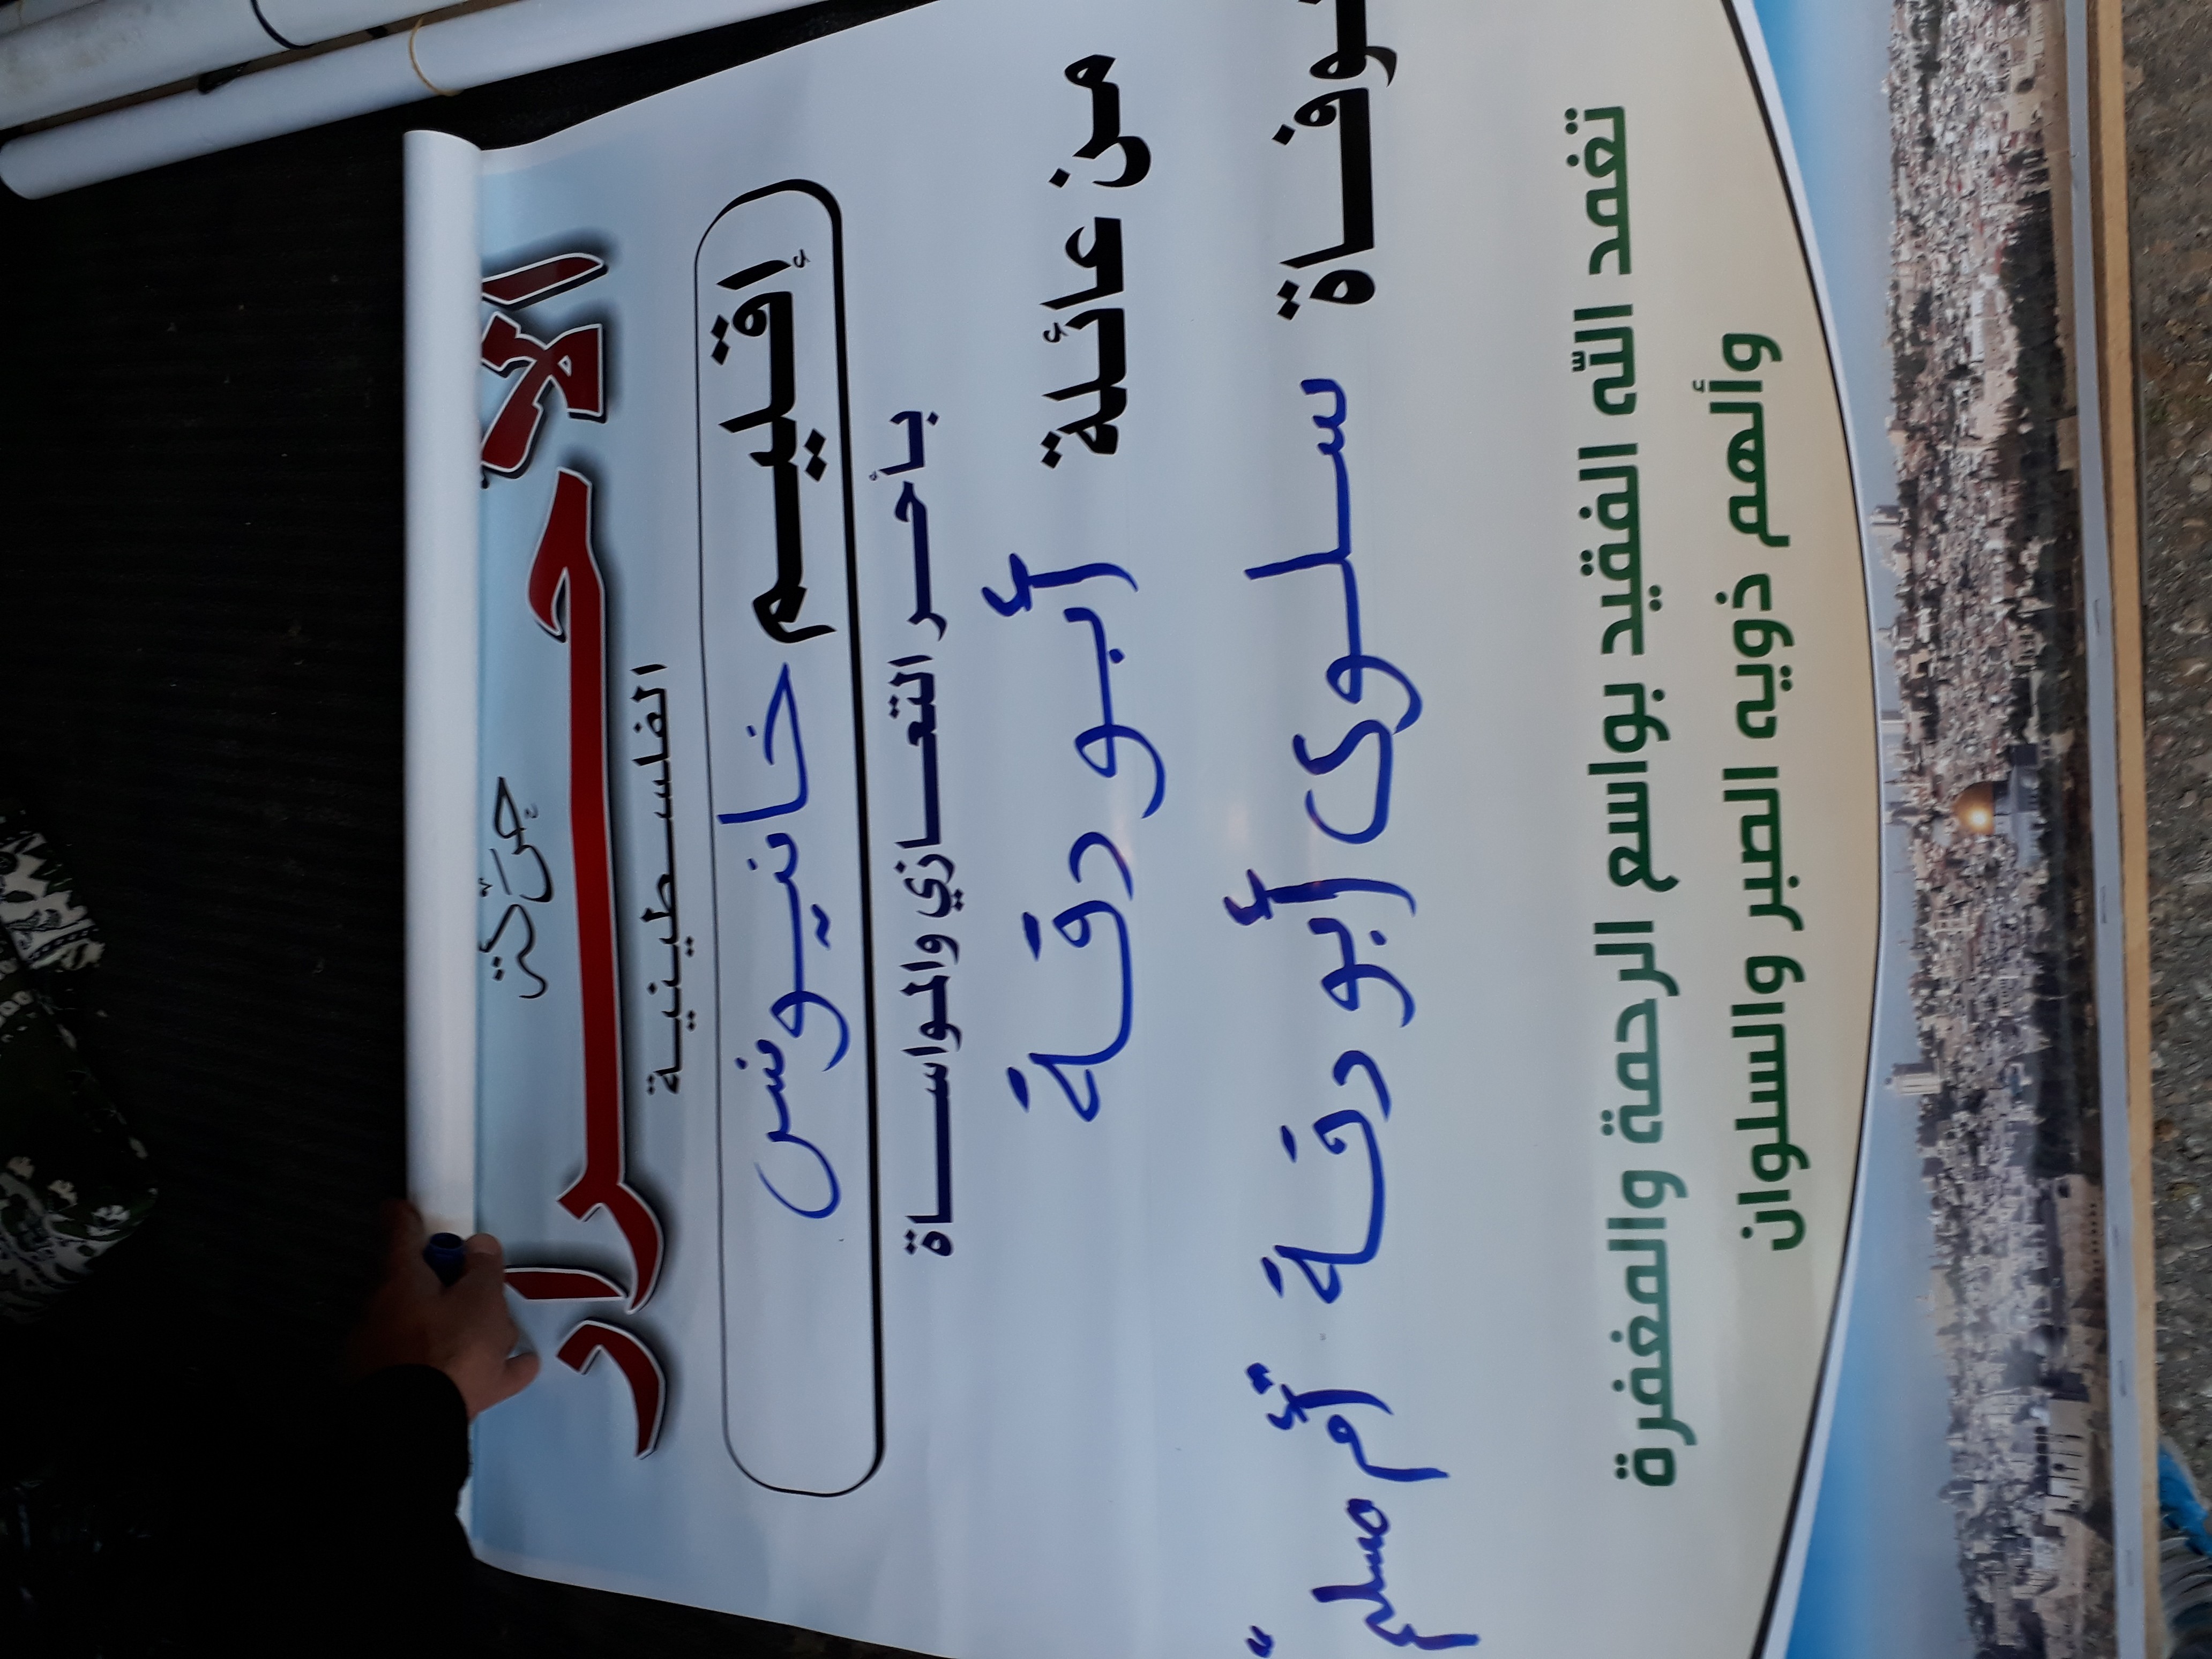 حركة
الأحرار
الفلسطينية
إقليم خانيونس
بأحر التعازي والمواساة
من عائلة أبو دقة
بوفاة سلوى أبو دقة "أم مسلم"
تغمد الله الفقيد بواسع الرحمة والمغفرة
وألهم ذويه الصبر والسلوان